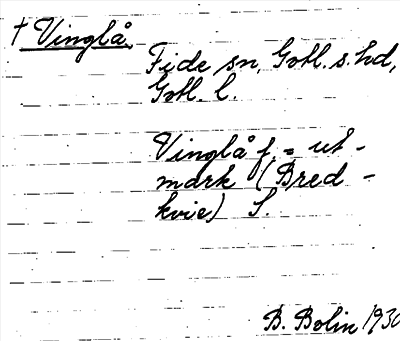 † Vinglå
Fide sn, Gotl. s. hd,
Gotl. l.
Vinglå f. = ut-
mark (Bred-
kvie) S.
B. Bolin 1930